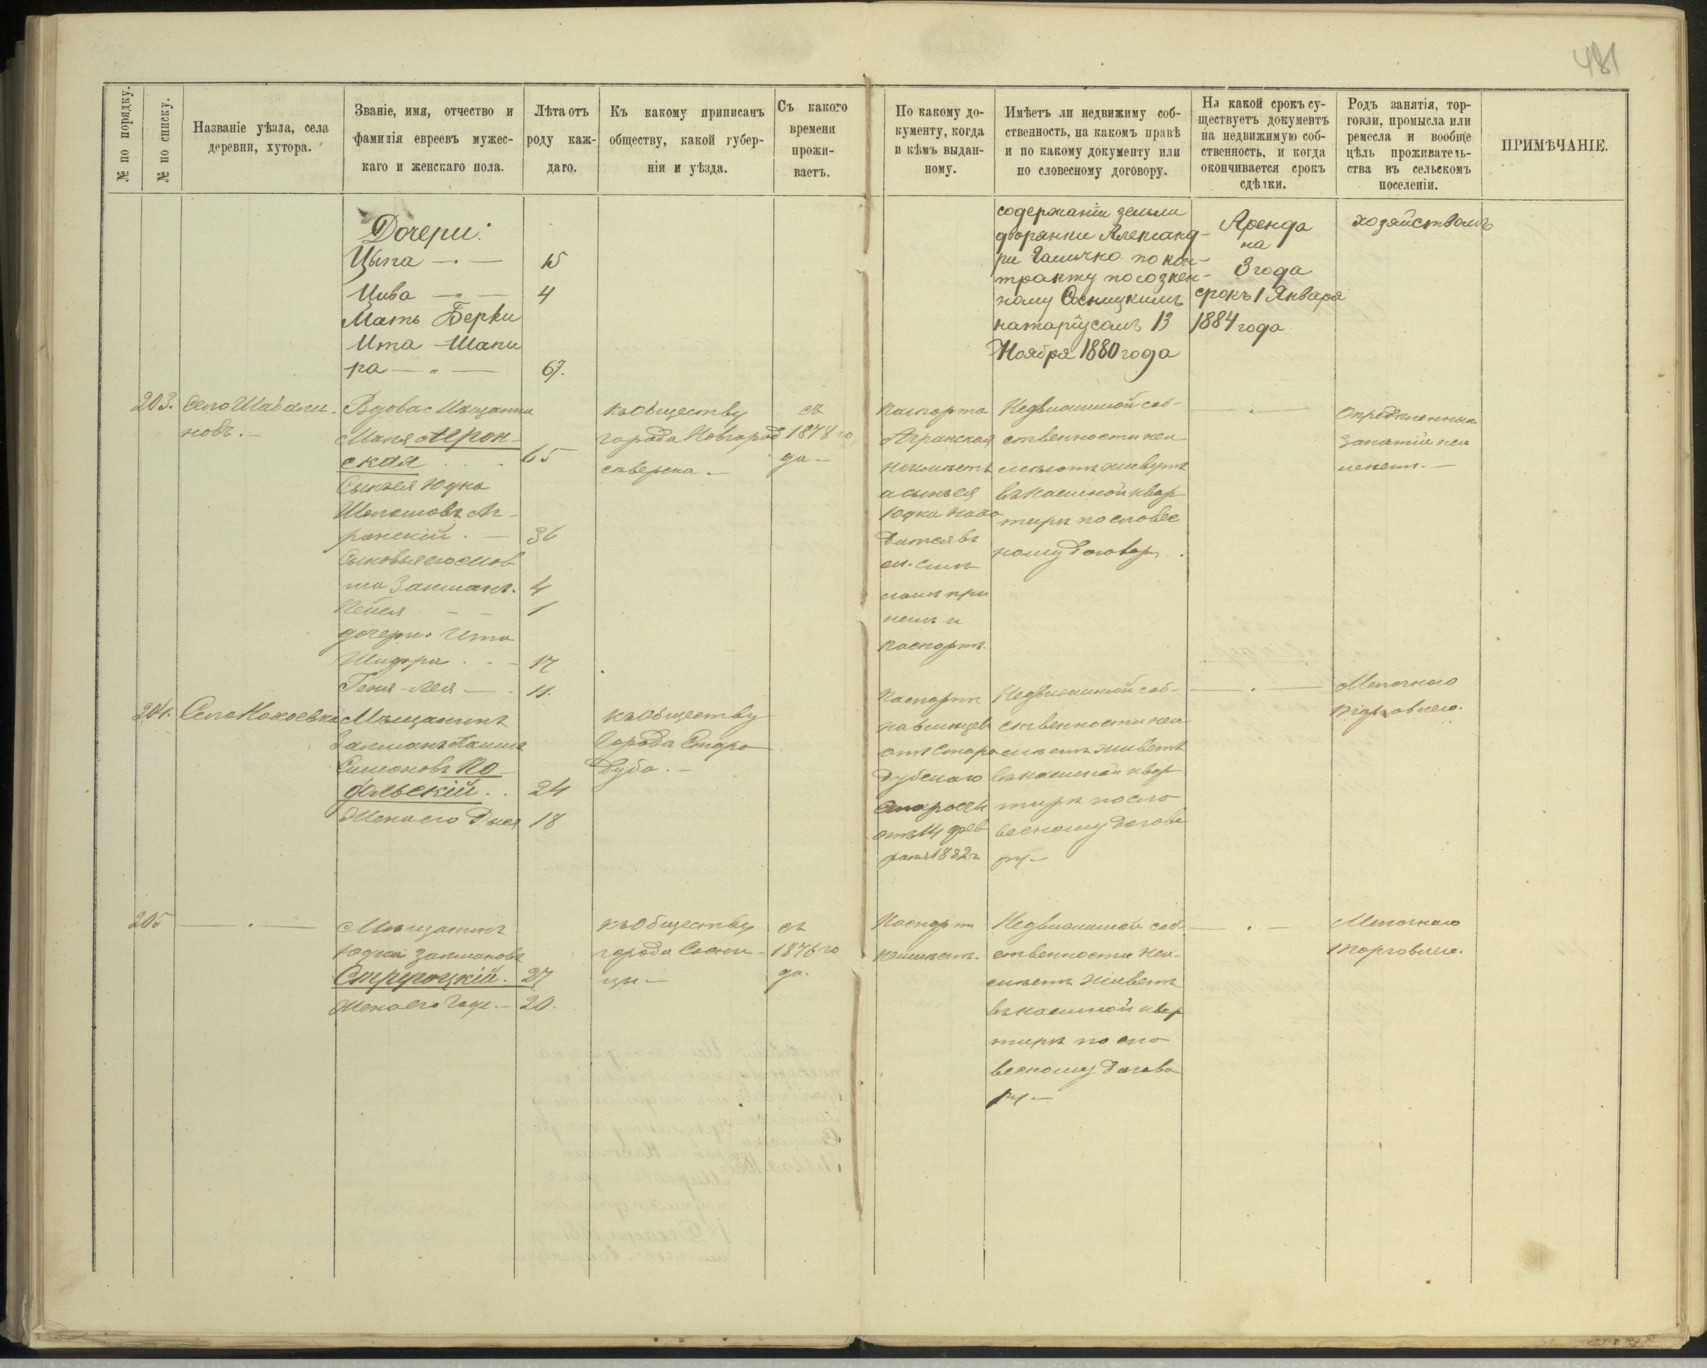 481
№ по порядку.
№ по списку.
Названіе уѣзда, села
деревни, хутора.
Званіе, имя, отчество и
фамилія евреевъ мужес-
каго и женскаго пола.
Лѣта отъ
роду каж-
даго.
Къ какому приписанъ
обществу, какой губер-
ніи и уѣзда.
Съ какого
времени
прожи-
ваетъ.
По какому до-
кументу, когда
и кѣмъ выдан-
ному.
Имѣетъ ли недвижиму соб-
ственность, на какомъ правѣ
и по какому документу или
по словесному договору.
На какой срокъ су-
ществуетъ документъ
на недвижимую соб-
ственность, и когда
окончивается срокъ
сдѣлки.
Родъ занятія, тор-
говли, промысла или
ремесла и вообще
цѣль проживатель-
ства въ сельскомъ
поселеніи.
ПРИМѢЧАНІЕ.
Дочери:
Цыпа — 15
Цива — 4
Мать Берки
Ита Шапи
ра — 67.
содержаніи земли
дворянки Александ-
ри по кон-
тракту
ному Сосницкимъ
натаріусомъ 13
Ноября 1880 года
Аренда
на
3 года
срокъ 1 Января
1884 года
хозяйствомъ
203.
Село
новъ. —
Вдова Мещанка
Маня Агрон-
ская 65
Сынъ ея Юдка
Аг-
ронскій. — 36
Сыновья его
Залманъ. 4
1
дочери. Ита
Шифра — 17
Геня-Лея — 11.
къ обществу
города Новгород
сѣверска. —
съ
1878 го
да —
паспорта
неимѣетъ
а сынъ ея
Юдка
дится въ
при
немъ и
паспортъ.
Недвижимой соб-
ственности неи-
мѣютъ живутъ
въ наемной квар
тирѣ по словес
ному договор
Опредѣленных
занятій неи
204.
Село
Мѣщанинъ
Залманъ
Симоновъ По
дольскій. 24
Жена его Двося 18
къ обществу
города Старо
дуба. —
Паспортъ
отъ Старо
дубскаго
Старосты
отъ 14 фев
раля 1882 г
Недвижимой соб-
ственности неи-
мѣетъ живетъ
въ наемной квар
тирѣ по сло
весному догово
ру —
Мелочною
торговлею.
205
Мѣщанинъ
Юдка Залмановъ
27
Жена его — 20.
къ обществу
города Сосни-
цы —
съ
1876 го
да.
Паспорт
неимѣетъ.
Недвижимой соб-
ственности неи-
мѣетъ живетъ
въ наемной квар
тирѣ по сло
весному догово
ру —
Мелочною
торговлею.